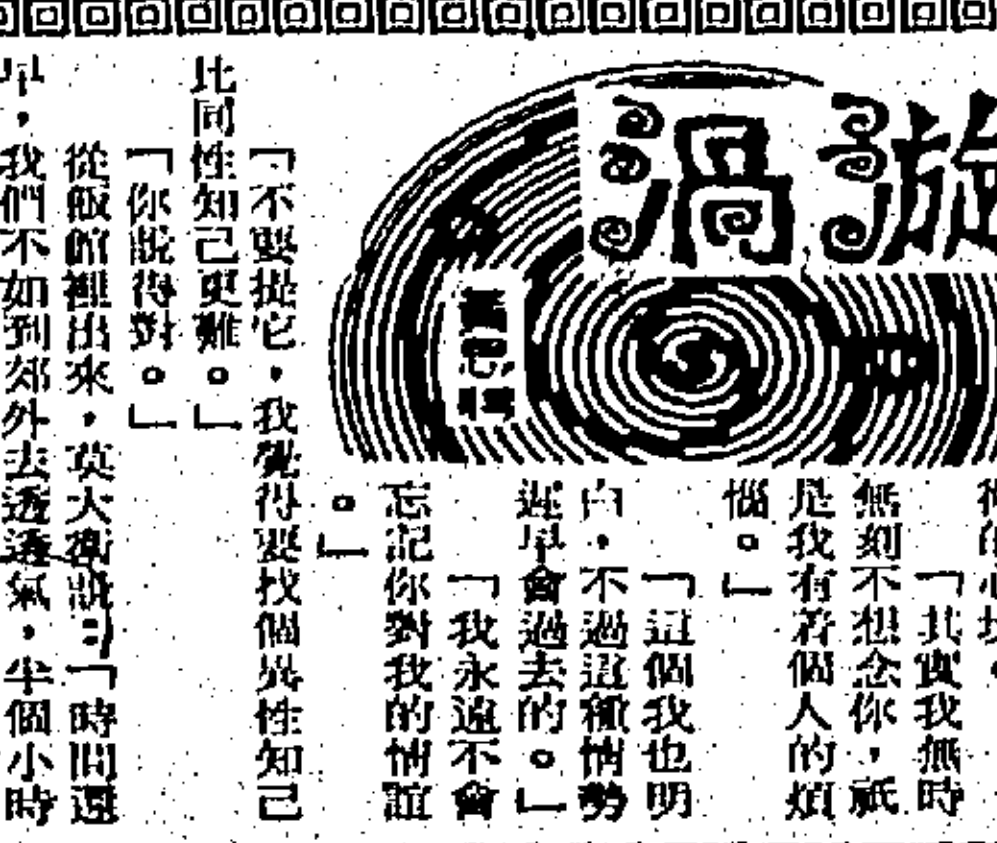 漩渦
「其實我無時
無刻不想念你，祇
是我有着個人的煩
惱。」
「這個我也明
白，不過這種情勢
遲早會過去的。」
「我永遠不會
忘記你對我的情誼
。」
「不要提它，我覺得要找個異性知己
比同性知己更難。」
「你說得對。」
從飯館裡出來，莫大衛說：「時間還
早，我們不如到郊外去透透氣，半個小時